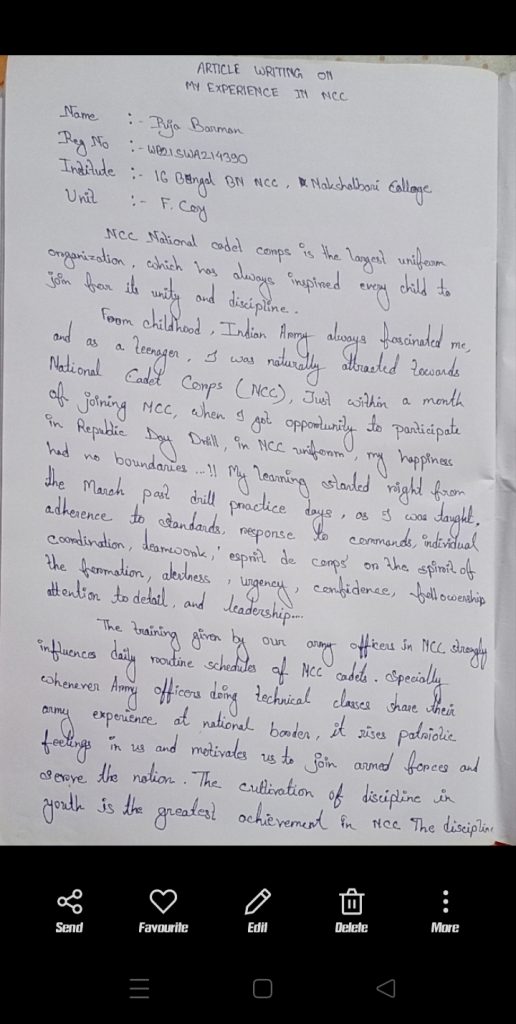 ARTICLE WRITING ON
MY EXPERIENCE IN NCC
Name :- Puja Barman
Reg No :- WB21SWA214390
Institude :- 16 Bengal BN NCC, Nakshalbari Collage
Unit :- F. Coy
NCC National cadet comps is the largest uniform
organization, which has always inspired every child to
join for its unity and discipline.
From childhood, Indian Army always fascinated me,
and as a teenager, I was naturally attracted towards
National Cadet Comps (NCC), Just within a month
of joining NCC, when I got opportunity to participate
in Republic Day Drill, in NCC uniform, my happiness
had no boundaries...!! My learning started right from
the March past drill practice days, as I was taught,
adherence to standards, response to commands, individual
coordination, teamwork, 'esprit de comps' on the spirit of
the formation, alertness, urgency, confidence, followership
attention to detail, and leadership...
The training given by our army officers in NCC strongly
influences daily routine schedules of NCC cadets. Specially
whenever Army officers doing technical classes share their
army experience at national border, it rises patriotic
feelings in us and motivates us to join armed forces and
serve the nation. The cultivation of discipline in
youth is the greatest achievement in NCC The discipline
Send Favourite Edit Delete More